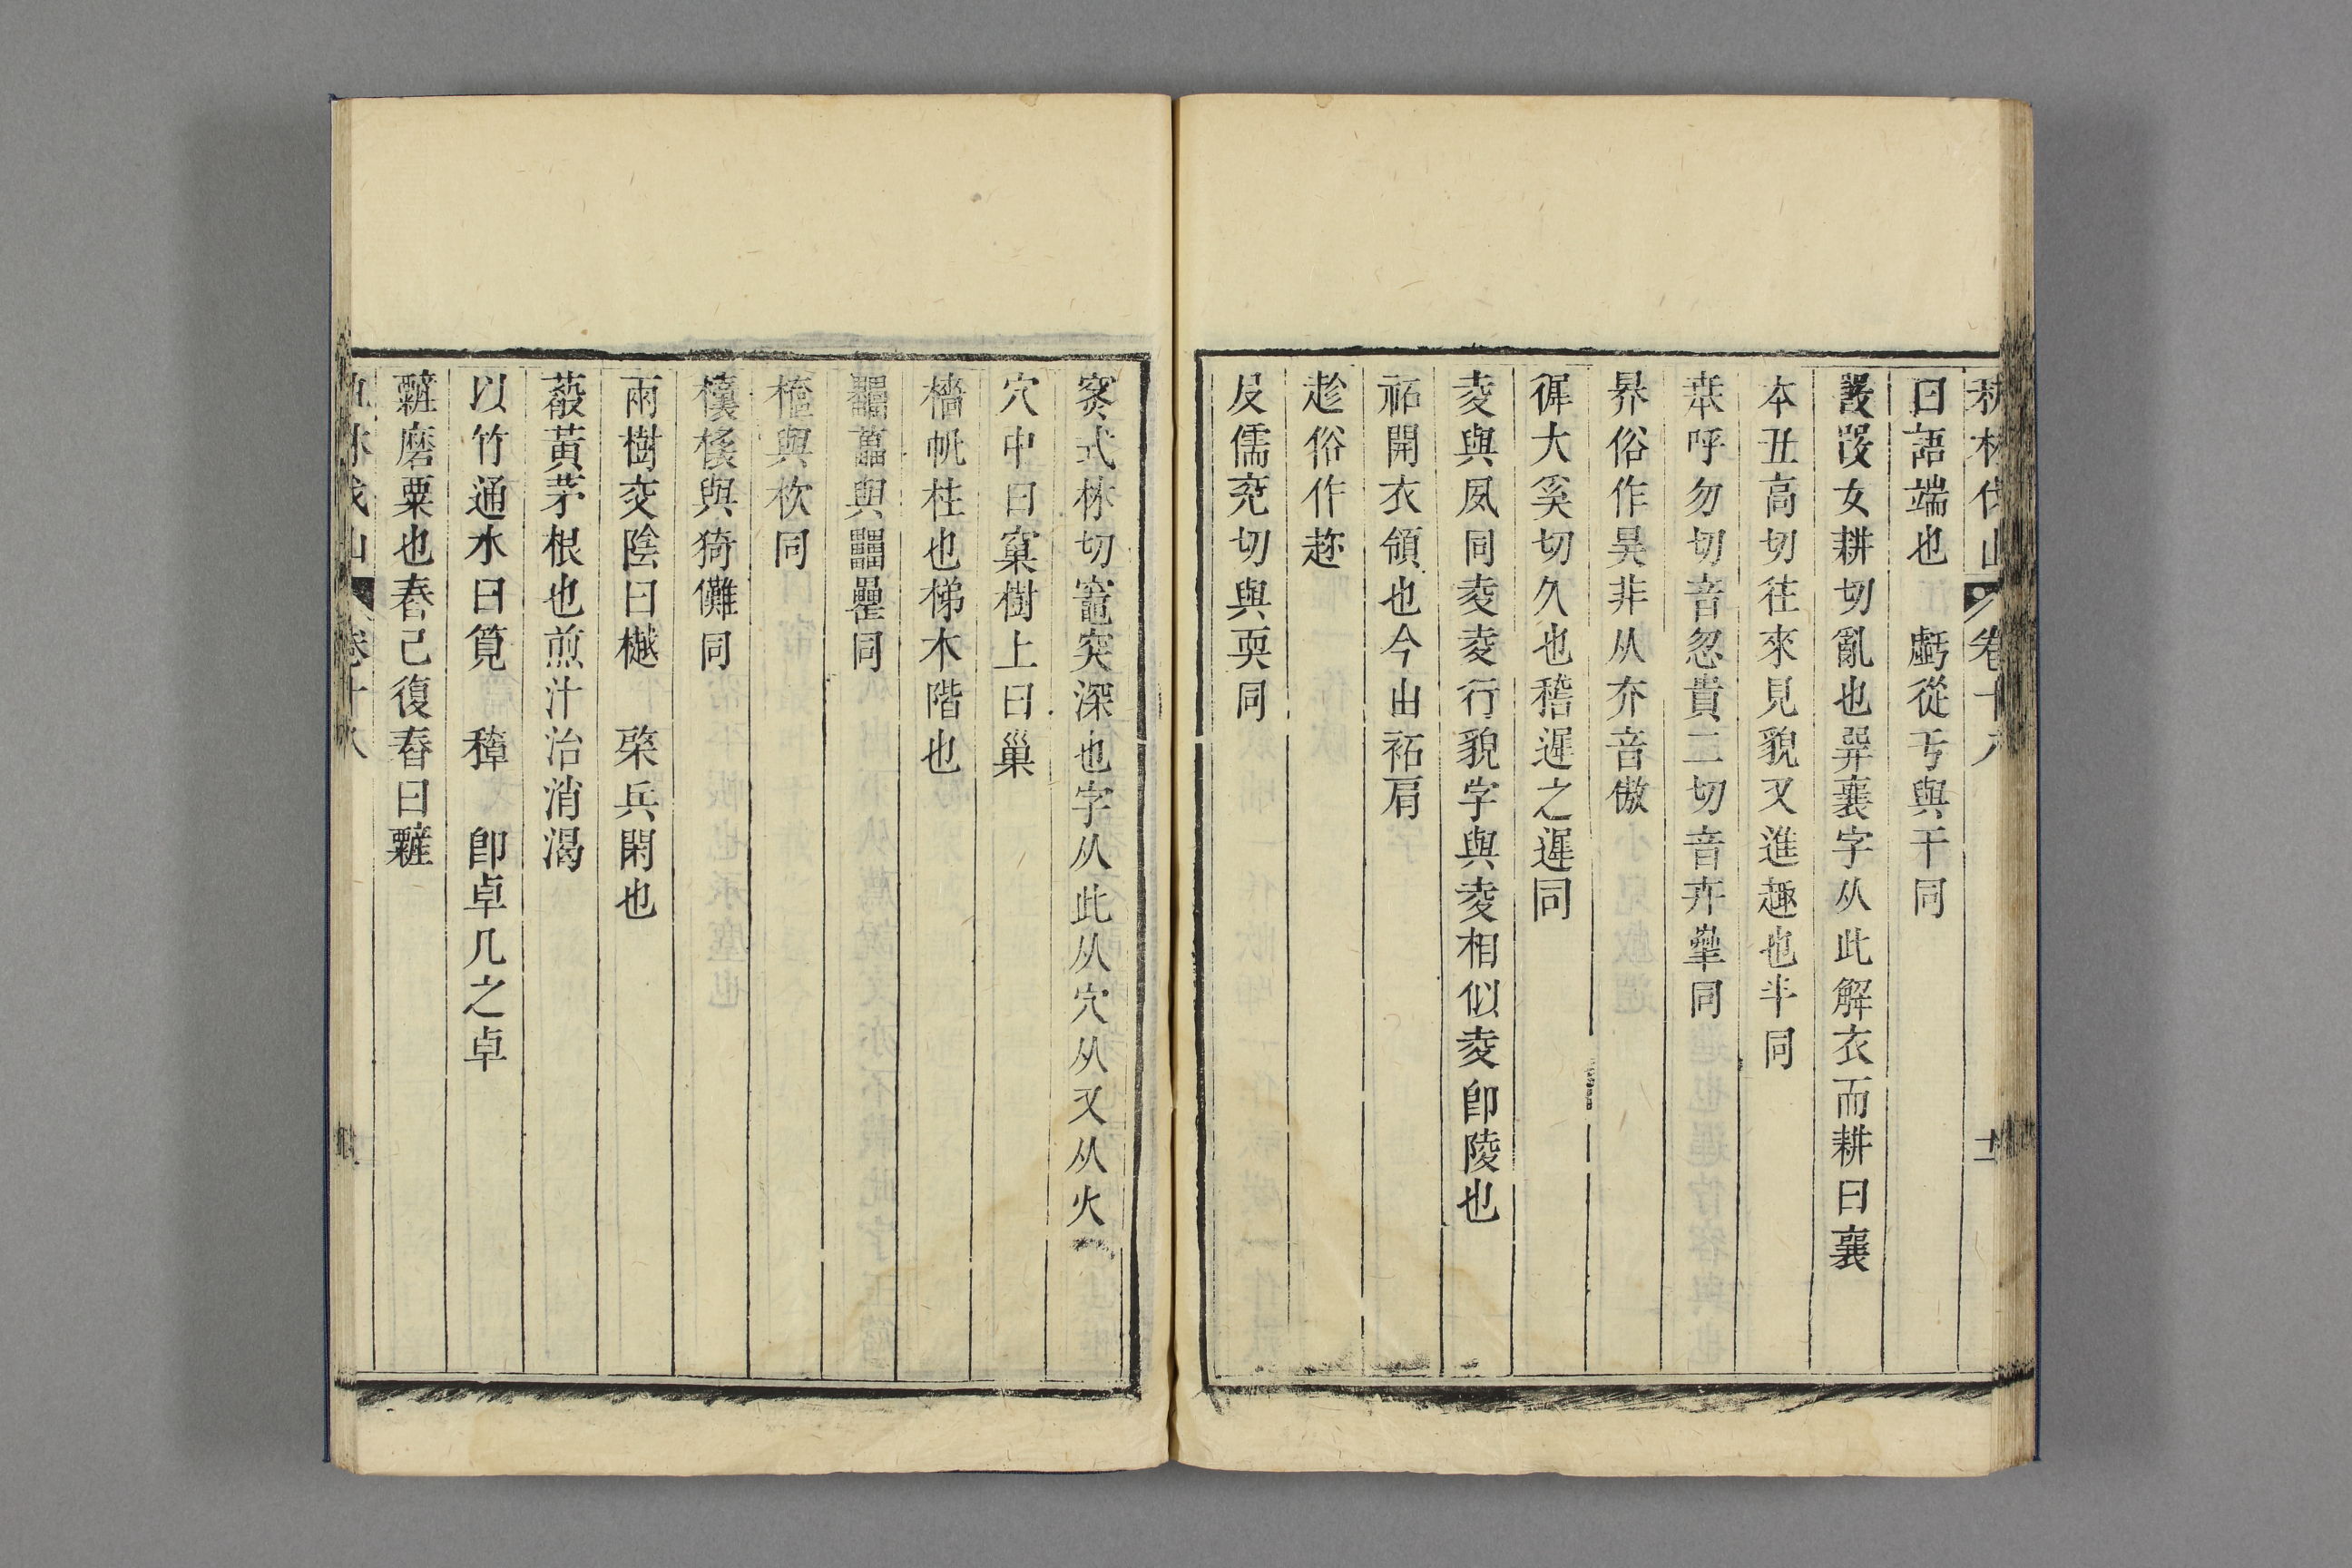 秇林伐山 卷十八 十一
曰語端也 虧從亐與干同
㗊㕟女耕切亂也㢲襄字从此解衣而耕曰襄
夲丑高切往來見貌又進趣也半同
㚊呼勿切音忽貴二切音卉㚔同
昦俗作昊非从夰音傲
徲大奚切久也稽遲之遲同
夌與夙同夌夌行貌字與夌相似夌卽陵也
袥開衣領也今由袥肩
趁俗作趂
㞋儒兗切與耎同
穼式林切竈突深也字从此从穴从又从火
穴中曰窠樹上曰巢
檣帆柱也梯木階也
與 同
與杴同
與猗儺同
雨樹交陰曰樾 棨兵闌也
葮黃茅根也煎汁治消渴
以竹通水曰筧 穕 卽卓几之卓
磨粟也舂已復舂曰
林伐山 卷十八